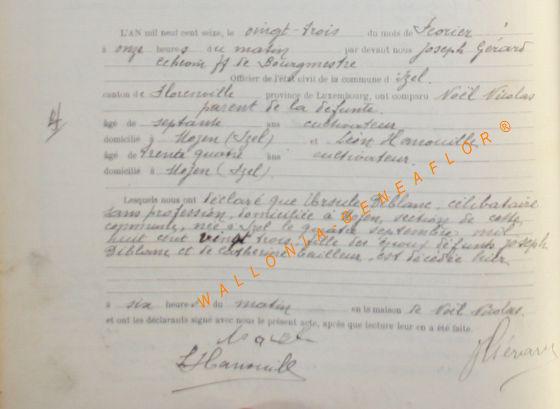 L'AN mil neuf cent seize, le vingt-trois du mois de Février
à onze heures du matin par devant nous Joseph Gérard
Echevin ff de Bourgmestre
Officier de l'état civil de la commune d'Izel.
canton de Florenville province de Luxembourg, ont comparu Noël Nicolas
parent de la défunte.
4
âgé de septante ans cultivateur
domicilié à Moyen (Izel) et Léon Hanouille
âgé de trente quatre ans cultivateur.
domicilié à Moyen (Izel)
Lesquels nous ont déclaré que Ursule Diblanc, célibataire
sans profession, domiciliée à Moyen, section de cette
commune, née à Izel le quatre septembre mil
huit cent vingt trois, fille des époux défunts Joseph
Diblanc et de Catherine, est décédée hier
à six heures du matin en la maison de Noël Nicolas
et ont les déclarants signé avec nous le présent acte, après que lecture leur en a été faite.
L Hanouille
JGérard
WALLONIA GENEAFLOR ®